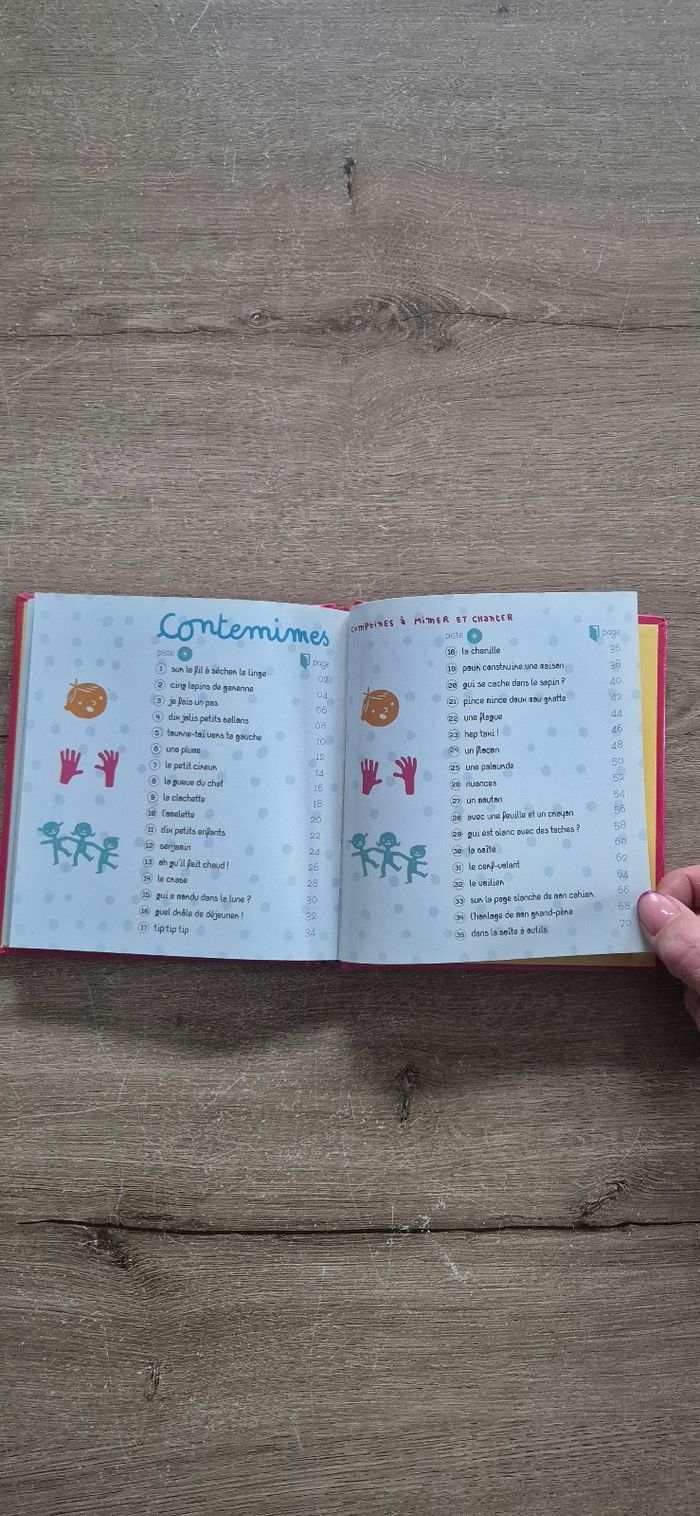 contemimes
piste page
1 sur le fil à sécher le linge 02
2 cinq lapins de garenne 04
3 je fais un pas 06
4 dix jolis petits ballons 08
5 tourne-toi vers ta gauche 10
6 une plume 12
7 le petit cireur 14
8 la queue du chat 16
9 la clochette 18
10 l'omelette 20
11 dix petits enfants 22
12 benjamin 24
13 oh qu'il fait chaud ! 26
14 le crabe 28
15 qui a mordu dans la lune ? 30
16 quel drôle de déjeuner ! 32
17 tip tip tip 34
comptines à mimer et chanter
piste page
18 la chenille 36
19 pour construire une maison 38
20 qui se cache dans le sapin ? 40
21 pince mince doux mou gratte 42
22 une flaque 44
23 hep taxi ! 46
24 un flocon 48
25 une palourde 50
26 nuances 52
27 un mouton 54
28 avec une feuille et un crayon 56
29 qui est blanc avec des taches ? 58
30 la boîte 60
31 le cerf-volant 62
32 le voilier 64
33 sur la page blanche de mon cahier 66
34 l'horloge de mon grand-père 68
35 dans la boîte à outils 70